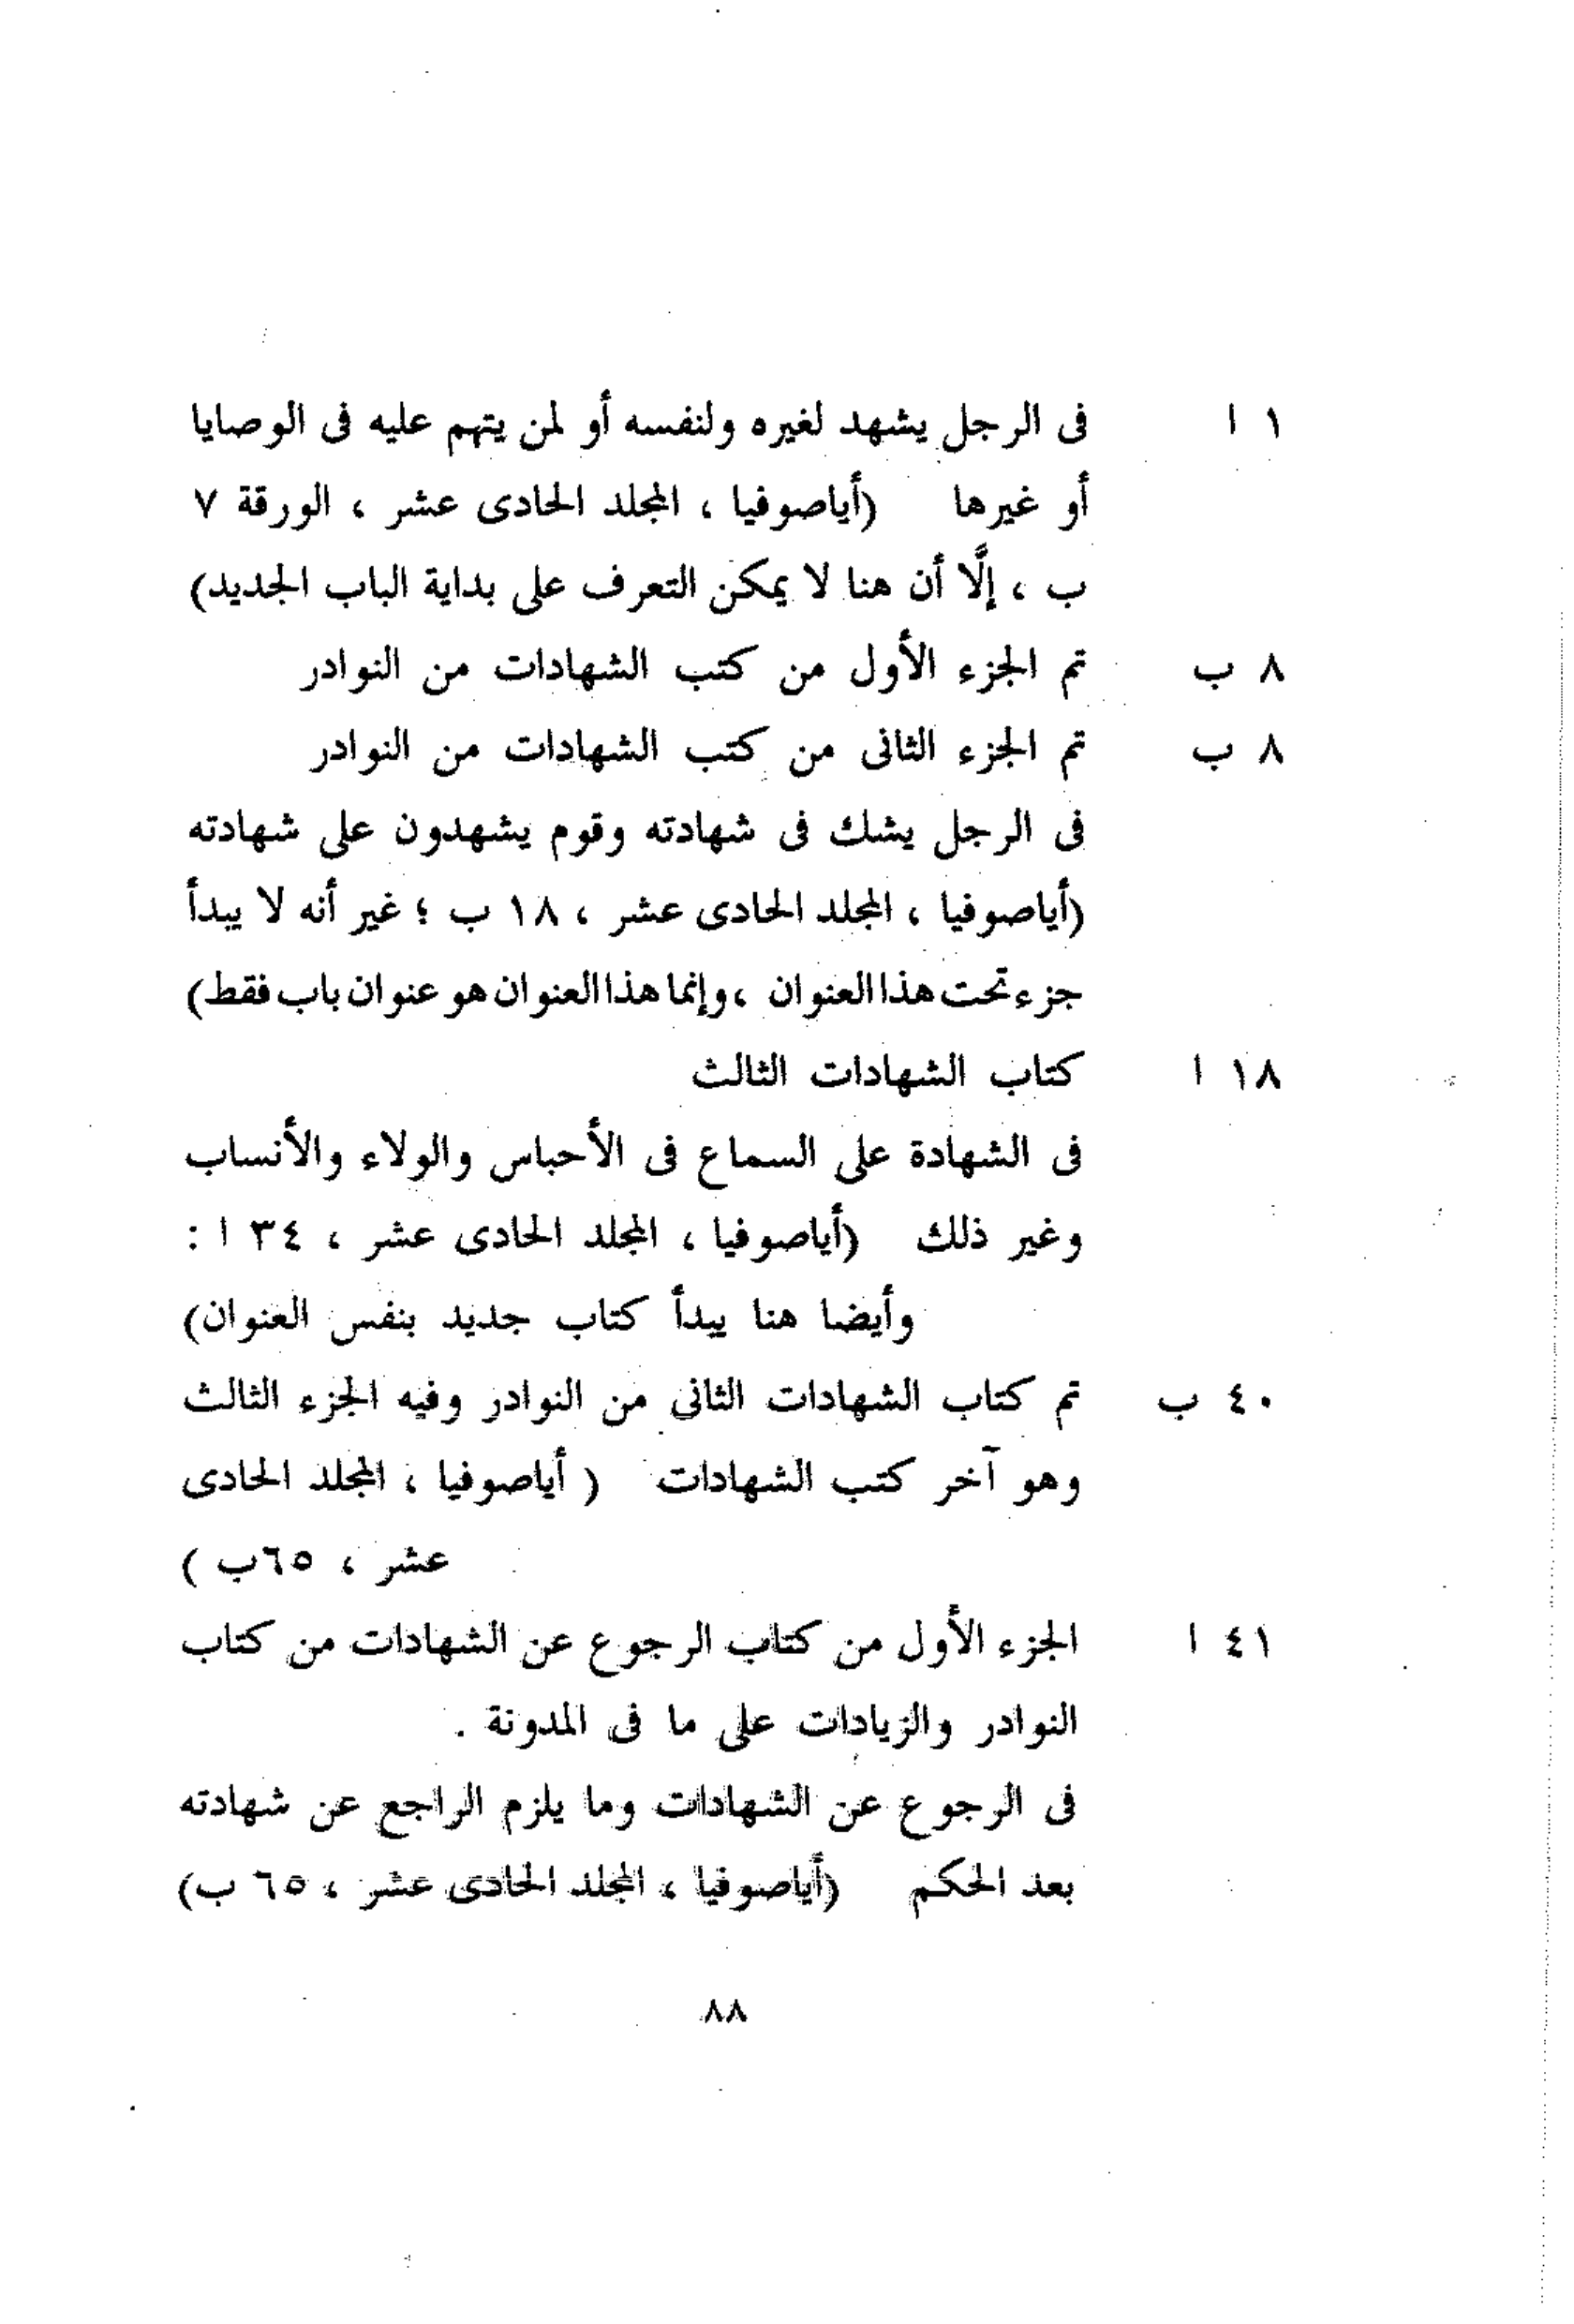 ١ ا فى الرجل يشهد لغيره ولنفسه أو لمن يتهم عليه فى الوصايا
أو غيرها (أياصوفيا ، المجلد الحادى عشر ، الورقة ٧
ب ، إلَّا أن هنا لا يمكن التعرف على بداية الباب الجديد)
٨ ب تم الجزء الأول من كتب الشهادات من النوادر
٨ ب تم الجزء الثانى من كتب الشهادات من النوادر
فى الرجل يشك فى شهادته وقوم يشهدون على شهادته
(أياصوفيا ، المجلد الحادى عشر ، ١٨ ب ؛ غير أنه لا يبدأ
جزء تحت هذا العنوان ، وإنما هذا العنوان هو عنوان باب فقط)
١٨ ا كتاب الشهادات الثالث
فى الشهادة على السماع فى الأحباس والولاء والأنساب
وغير ذلك (أياصوفيا ، المجلد الحادى عشر ، ٣٤ ا :
وأيضا هنا يبدأ كتاب جديد بنفس العنوان)
٤٠ ب تم كتاب الشهادات الثانى من النوادر وفيه الجزء الثالث
وهو آخر كتب الشهادات ( أياصوفيا ، المجلد الحادى
عشر ، ٦٥ب )
٤١ ا الجزء الأول من كتاب الرجوع عن الشهادات من كتاب
النوادر والزيادات على ما فى المدونة .
فى الرجوع عن الشهادات وما يلزم الراجع عن شهادته
بعد الحكم (أياصوفيا ، المجلد الحادى عشر ، ٦٥ ب)
٨٨